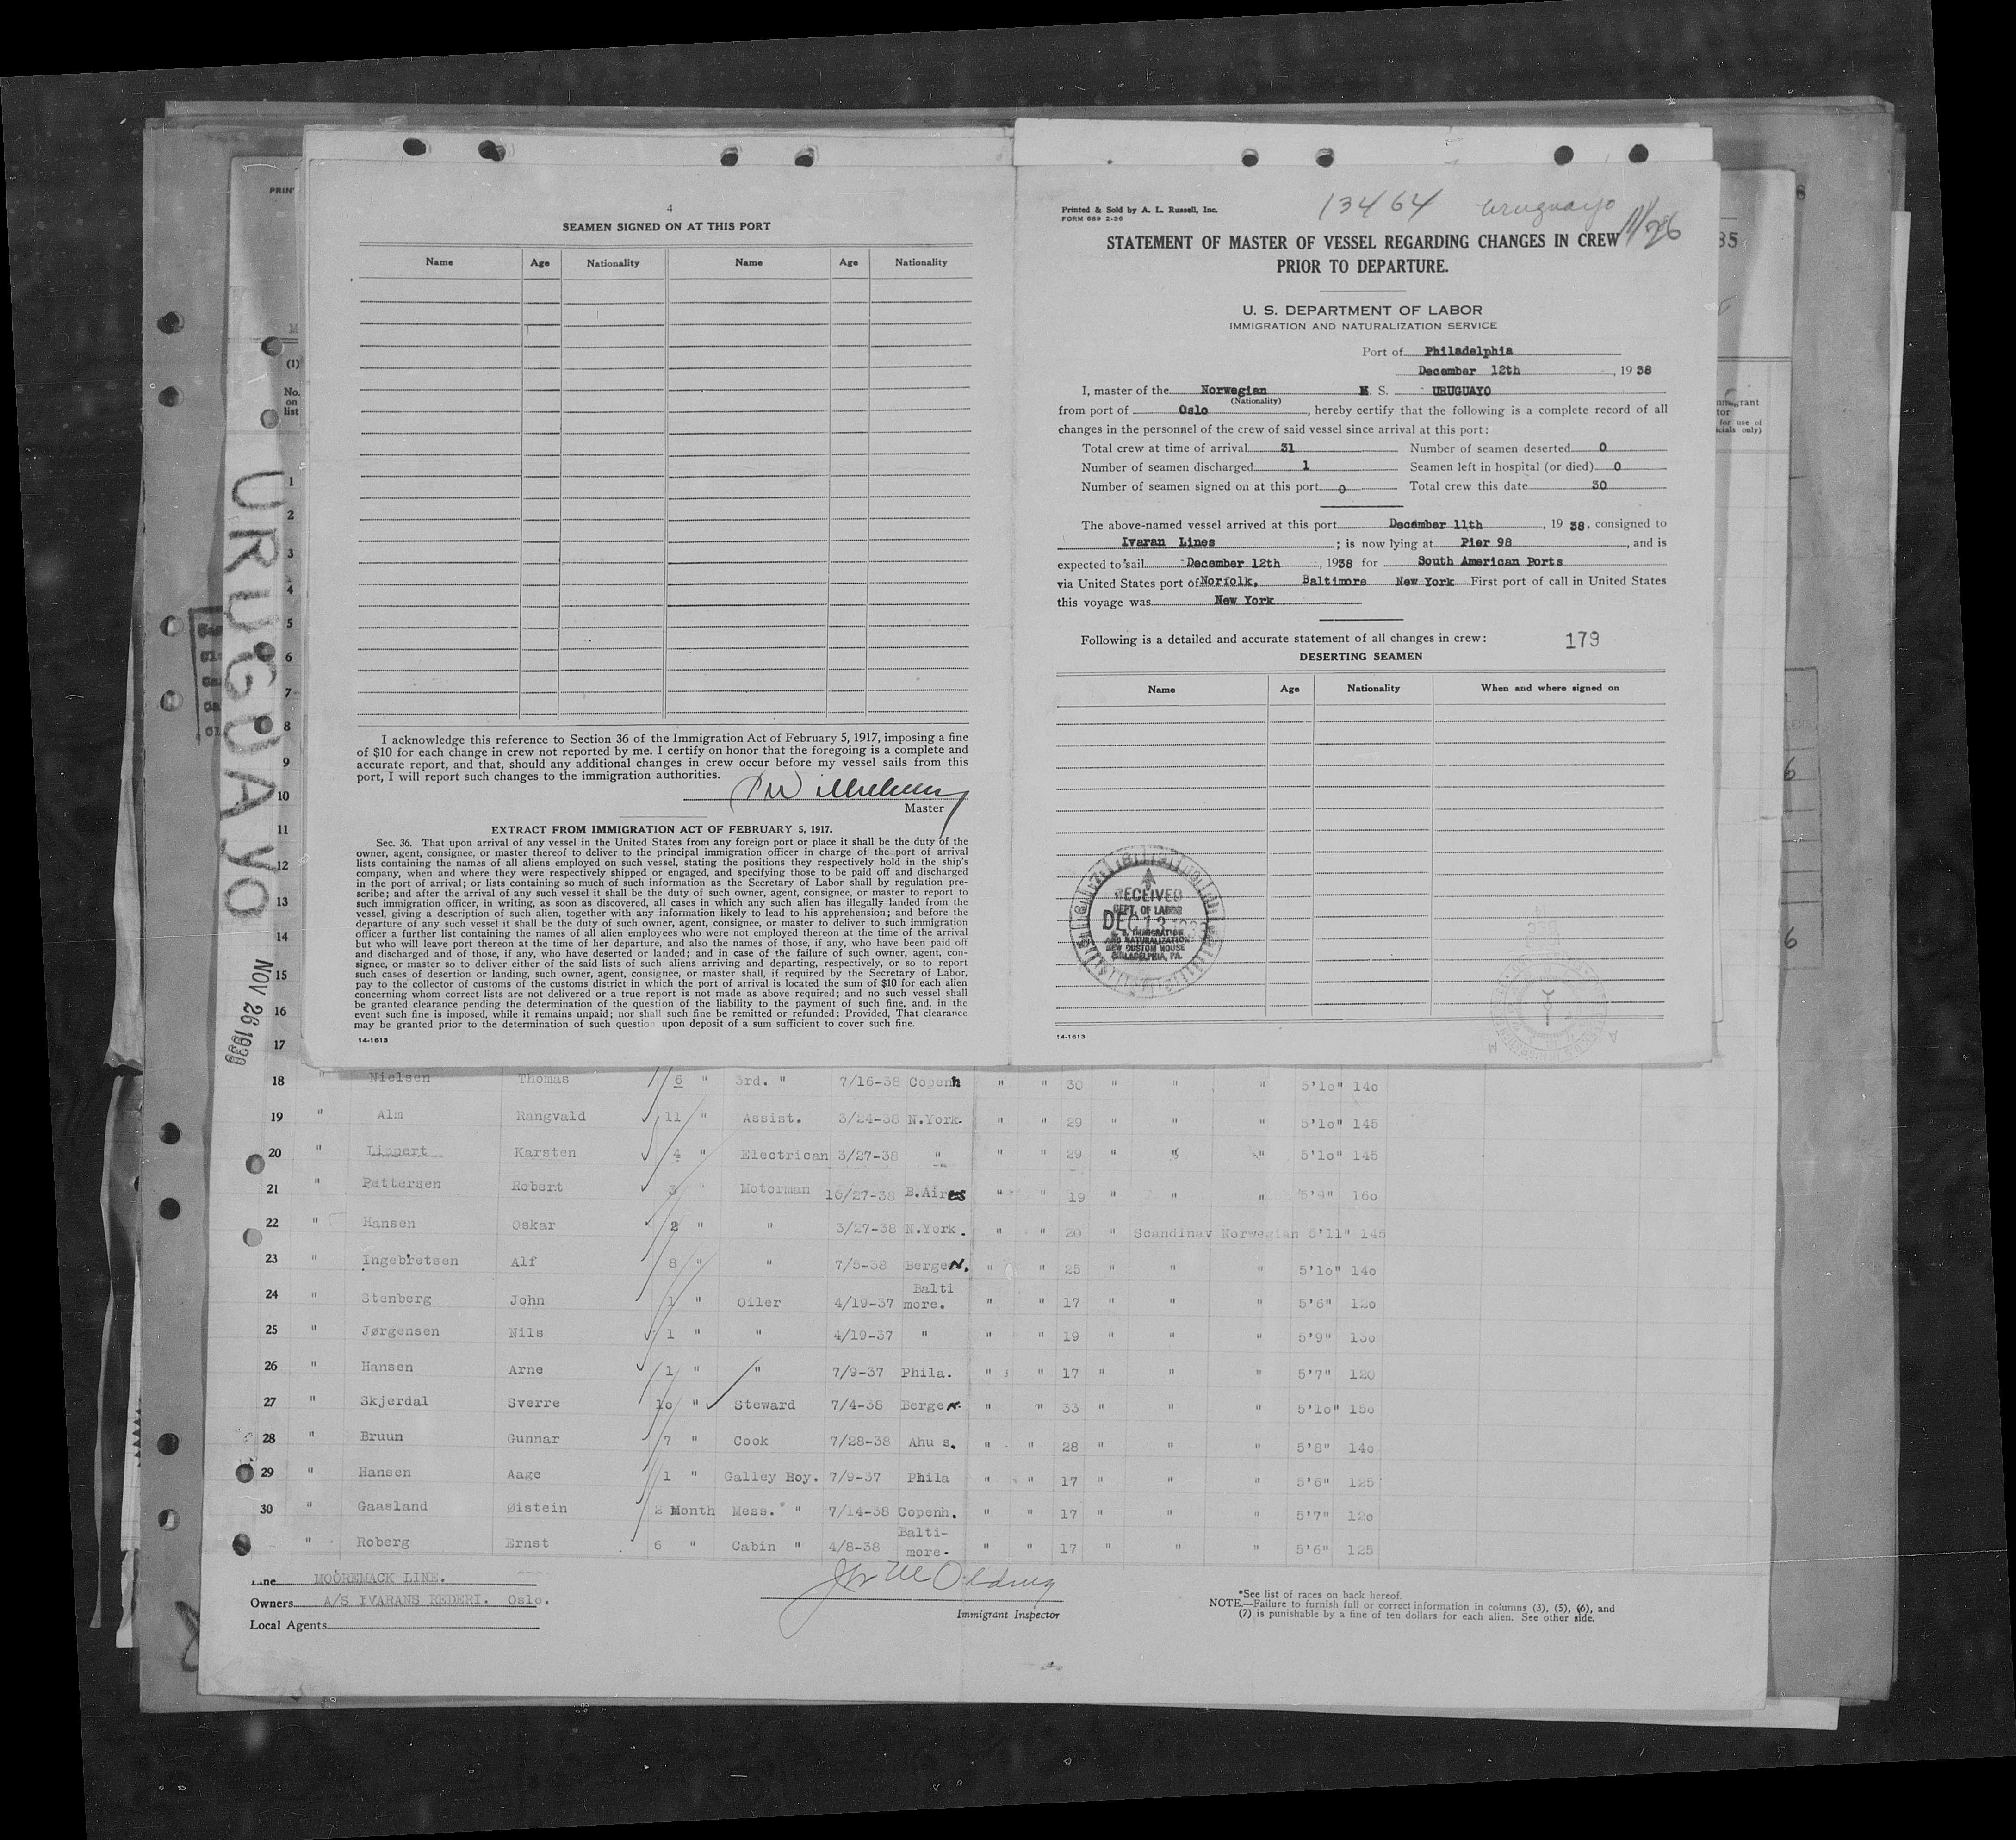 4
SEAMEN SIGNED ON AT THIS PORT
Name Age Nationality Name Age Nationality
I acknowledge this reference to Section 36 of the Immigration Act of February 5, 1917, imposing a fine
of $10 for each change in crew not reported by me. I certify on honor that the foregoing is a complete and
accurate report, and that, should any additional changes in crew occur before my vessel sails from this
port, I will report such changes to the immigration authorities.
Master
EXTRACT FROM IMMIGRATION ACT OF FEBRUARY 5, 1917.
Sec. 36. That upon arrival of any vessel in the United States from any foreign port or place it shall be the duty of the
owner, agent, consignee, or master thereof to deliver to the principal immigration officer in charge of the port of arrival
lists containing the names of all aliens employed on such vessel, stating the positions they respectively hold in the ship's
company, when and where they were respectively shipped or engaged, and specifying those to be paid off and discharged
in the port of arrival; or lists containing so much of such information as the Secretary of Labor shall by regulation pre-
scribe; and after the arrival of any such vessel it shall be the duty of such owner, agent, consignee, or master to report to
such immigration officer, in writing, as soon as discovered, all cases in which any such alien has illegally landed from the
vessel, giving a description of such alien, together with any information likely to lead to his apprehension; and before the
departure of any such vessel it shall be the duty of such owner, agent, consignee, or master to deliver to such immigration
officer a further list containing the names of all alien employees who were not employed thereon at the time of the arrival
but who will leave port thereon at the time of her departure, and also the names of those, if any, who have been paid off
and discharged and of those, if any, who have deserted or landed; and in case of the failure of such owner, agent, con-
signee, or master so to deliver either of the said lists of such aliens arriving and departing, respectively, or so to report
such cases of desertion or landing, such owner, agent, consignee, or master shall, if required by the Secretary of Labor,
pay to the collector of customs of the customs district in which the port of arrival is located the sum of $10 for each alien
concerning whom correct lists are not delivered or a true report is not made as above required; and no such vessel shall
be granted clearance pending the determination of the question of the liability to the payment of such fine, and, in the
event such fine is imposed, while it remains unpaid; nor shall such fine be remitted or refunded: Provided, That clearance
may be granted prior to the determination of such question upon deposit of a sum sufficient to cover such fine.
14-1613
Printed & Sold by A. L. Russell, Inc.
FORM 689 2-36
13464 Uruguayo 11/26
STATEMENT OF MASTER OF VESSEL REGARDING CHANGES IN CREW
PRIOR TO DEPARTURE.
U. S. DEPARTMENT OF LABOR
IMMIGRATION AND NATURALIZATION SERVICE
Port of Philadelphia
December 12th, 1938
I, master of the Norwegian M. S. URUGUAYO
(Nationality)
from port of Oslo, hereby certify that the following is a complete record of all
changes in the personnel of the crew of said vessel since arrival at this port:
Total crew at time of arrival 31 Number of seamen deserted 0
Number of seamen discharged 1 Seamen left in hospital (or died) 0
Number of seamen signed on at this port 0 Total crew this date 30
The above-named vessel arrived at this port December 11th, 1938, consigned to
Ivaran Lines; is now lying at Pier 98, and is
expected to sail December 12th, 1938 for South American Ports
via United States port of Norfolk, Baltimore New York First port of call in United States
this voyage was New York
Following is a detailed and accurate statement of all changes in crew: 179
DESERTING SEAMEN
Name Age Nationality When and where signed on
RECEIVED
DEPT. OF LABOR
DEC 12 1938
IMMIGRATION
AND NATURALIZATION
NEW CUSTOM HOUSE
PHILADELPHIA, PA.
14-1613
URUGUAYO
NOV 26 1938
PRIN
(1)
No.
on
list
1
2
3
4
5
6
7
8
9
10
11
12
13
14
15
16
17
18 " Nielsen Thomas 6 " 3rd. " 7/16-38 Copenh " " 30 " " " 5'10" 140
19 " Alm Rangvald 11 " Assist. 3/24-38 N.York. " " 29 " " " 5'10" 145
20 " Lippert Karsten 4 " Electrican 3/27-38 " " " 29 " " " 5'10" 145
21 " Pettersen Robert 3 " Motorman 10/27-38 B.Aires " " 19 " " " 5'9" 160
22 " Hansen Oskar 2 " " 3/27-38 N.York. " " 20 " Scandinav Norwegian 5'11" 145
23 " Ingebretsen Alf 8 " " 7/5-38 Bergen. " " 25 " " " 5'10" 140
24 " Stenberg John 1 " Oiler 4/19-37 Baltimore. " " 17 " " " 5'6" 120
25 " Jørgensen Nils 1 " " 4/19-37 " " " 19 " " " 5'9" 130
26 " Hansen Arne 1 " " 7/9-37 Phila. " " 17 " " " 5'7" 120
27 " Skjerdal Sverre 10 " Steward 7/4-38 Bergen. " " 33 " " " 5'10" 150
28 " Bruun Gunnar 7 " Cook 7/28-38 Ahu s. " " 28 " " " 5'8" 140
29 " Hansen Aage 1 " Galley Boy. 7/9-37 Phila " " 17 " " " 5'6" 125
30 " Gaasland Øistein 2 Month Mess. " 7/14-38 Copenh. " " 17 " " " 5'7" 120
" Roberg Ernst 6 " Cabin " 4/8-38 Balti-more. " " 17 " " " 5'6" 125
Line MOOREMACK LINE.
Owners A/S IVARANS REDERI. Oslo.
Local Agents
Immigrant Inspector
*See list of races on back hereof.
NOTE.—Failure to furnish full or correct information in columns (3), (5), (6), and
(7) is punishable by a fine of ten dollars for each alien. See other side.